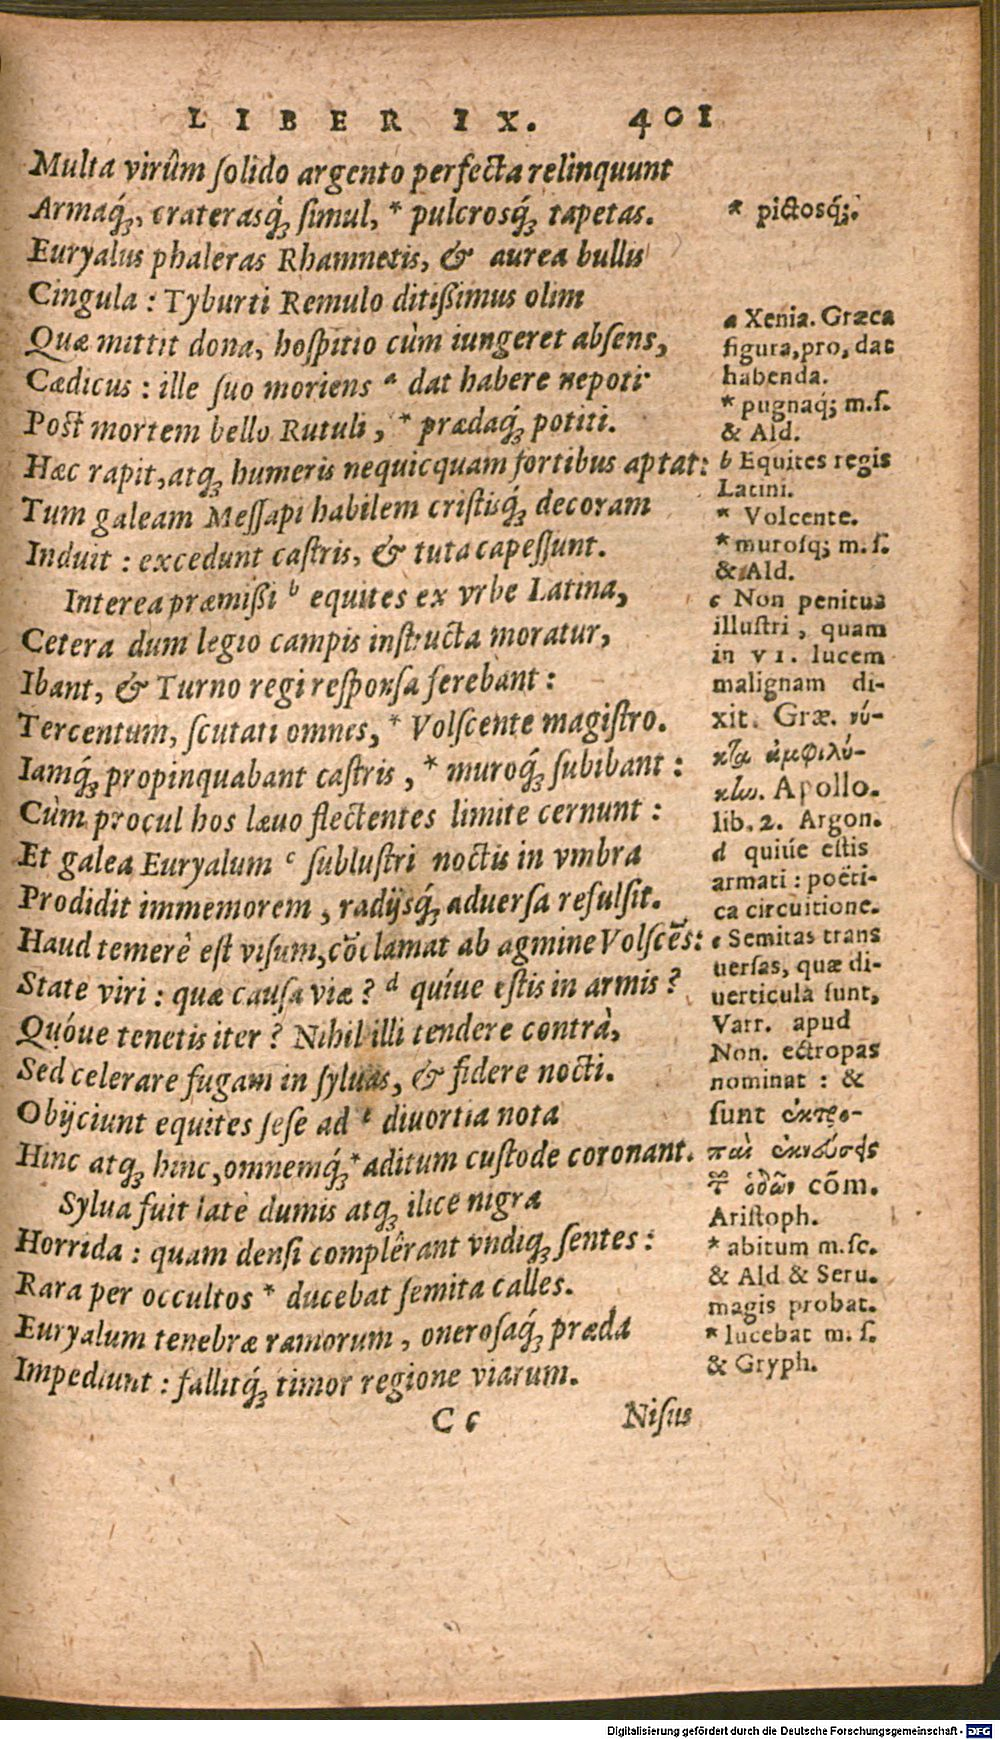 LIBER IX. 401
Multa virûm ſolido argento perfecta relinquunt
Armaq́ꝫ, craterasq́ꝫ ſimul, * pulcrosq́ꝫ tapetas.
Euryalus phaleras Rhamnetis, & aurea bullis
Cingula : Tyburti Remulo ditißimus olim
Quæ mittit dona, hoſpitio cùm iungeret abſens,
Cædicus : ille ſuo moriens a dat habere nepoti
Poſt mortem bello Rutuli, * prædaq́ꝫ potiti.
Hæc rapit, atqꝫ humeris nequicquam fortibus aptat:
Tum galeam Meſſapi habilem criſtisq́ꝫ decoram
Induit : excedunt caſtris, & tuta capeſſunt.
Interea præmißi b equites ex vrbe Latina,
Cetera dum legio campis inſtructa moratur,
Ibant, & Turno regi reſponſa ferebant :
Tercentum, ſcutati omnes, * Volſcente magiſtro.
Iamq́ꝫ propinquabant caſtris, * muroq́ꝫ ſubibant :
Cùm procul hos læuo flectentes limite cernunt :
Et galea Euryalum c ſubluſtri noctis in vmbra
Prodidit immemorem, radijsq́ꝫ aduerſa refulſit.
Haud temerè eſt viſum, cōclamat ab agmine Volſcēs:
State viri : quæ cauſa viæ ? d quíue eſtis in armis ?
Quóue tenetis iter ? Nihil illi tendere contrà,
Sed celerare fugam in ſyluas, & fidere nocti.
Obijciunt equites ſeſe ad e diuortia nota
Hinc atqꝫ hinc, omnemq́ꝫ * aditum cuſtode coronant.
Sylua fuit latè dumis atqꝫ ilice nigra
Horrida : quam denſi complêrant vndiqꝫ ſentes :
Rara per occultos * ducebat ſemita calles.
Euryalum tenebræ ramorum, onerosaq́ꝫ præda
Impediunt : fallitq́ꝫ timor regione viarum.
Cc Niſus
* pictosq́ꝫ.
a Xenia. Græca
figura, pro, dat
habenda.
* pugnaq́; m.ſ.
& Ald.
b Equites regis
Latini.
* Volcente.
* muroſq; m.ſ.
& Ald.
c Non penitus
illuſtri, quam
in VI. lucem
malignam di-
xit. Græ. νύ-
κτα ἀμφιλύ-
κην. Apollo.
lib. 2. Argon.
d quiúe eſtis
armati : poëti-
ca circuitione.
e Semitas trans
uerſas, quæ di-
uerticula ſunt,
Varr. apud
Non. ectropas
nominat : &
ſunt ἐκτρο-
παὶ
ὁδῶν cōm.
Ariſtoph.
* abitum m.ſc.
& Ald & Seru.
magis probat.
* lucebat m. ſ.
& Gryph.
Digitalisierung gefördert durch die Deutsche Forschungsgemeinschaft - DFG